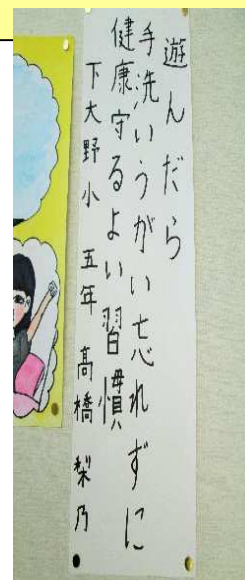 遊んだら
手洗いうがい忘れずに
健康守るよい習慣
下大野小 五年 高橋 梨乃